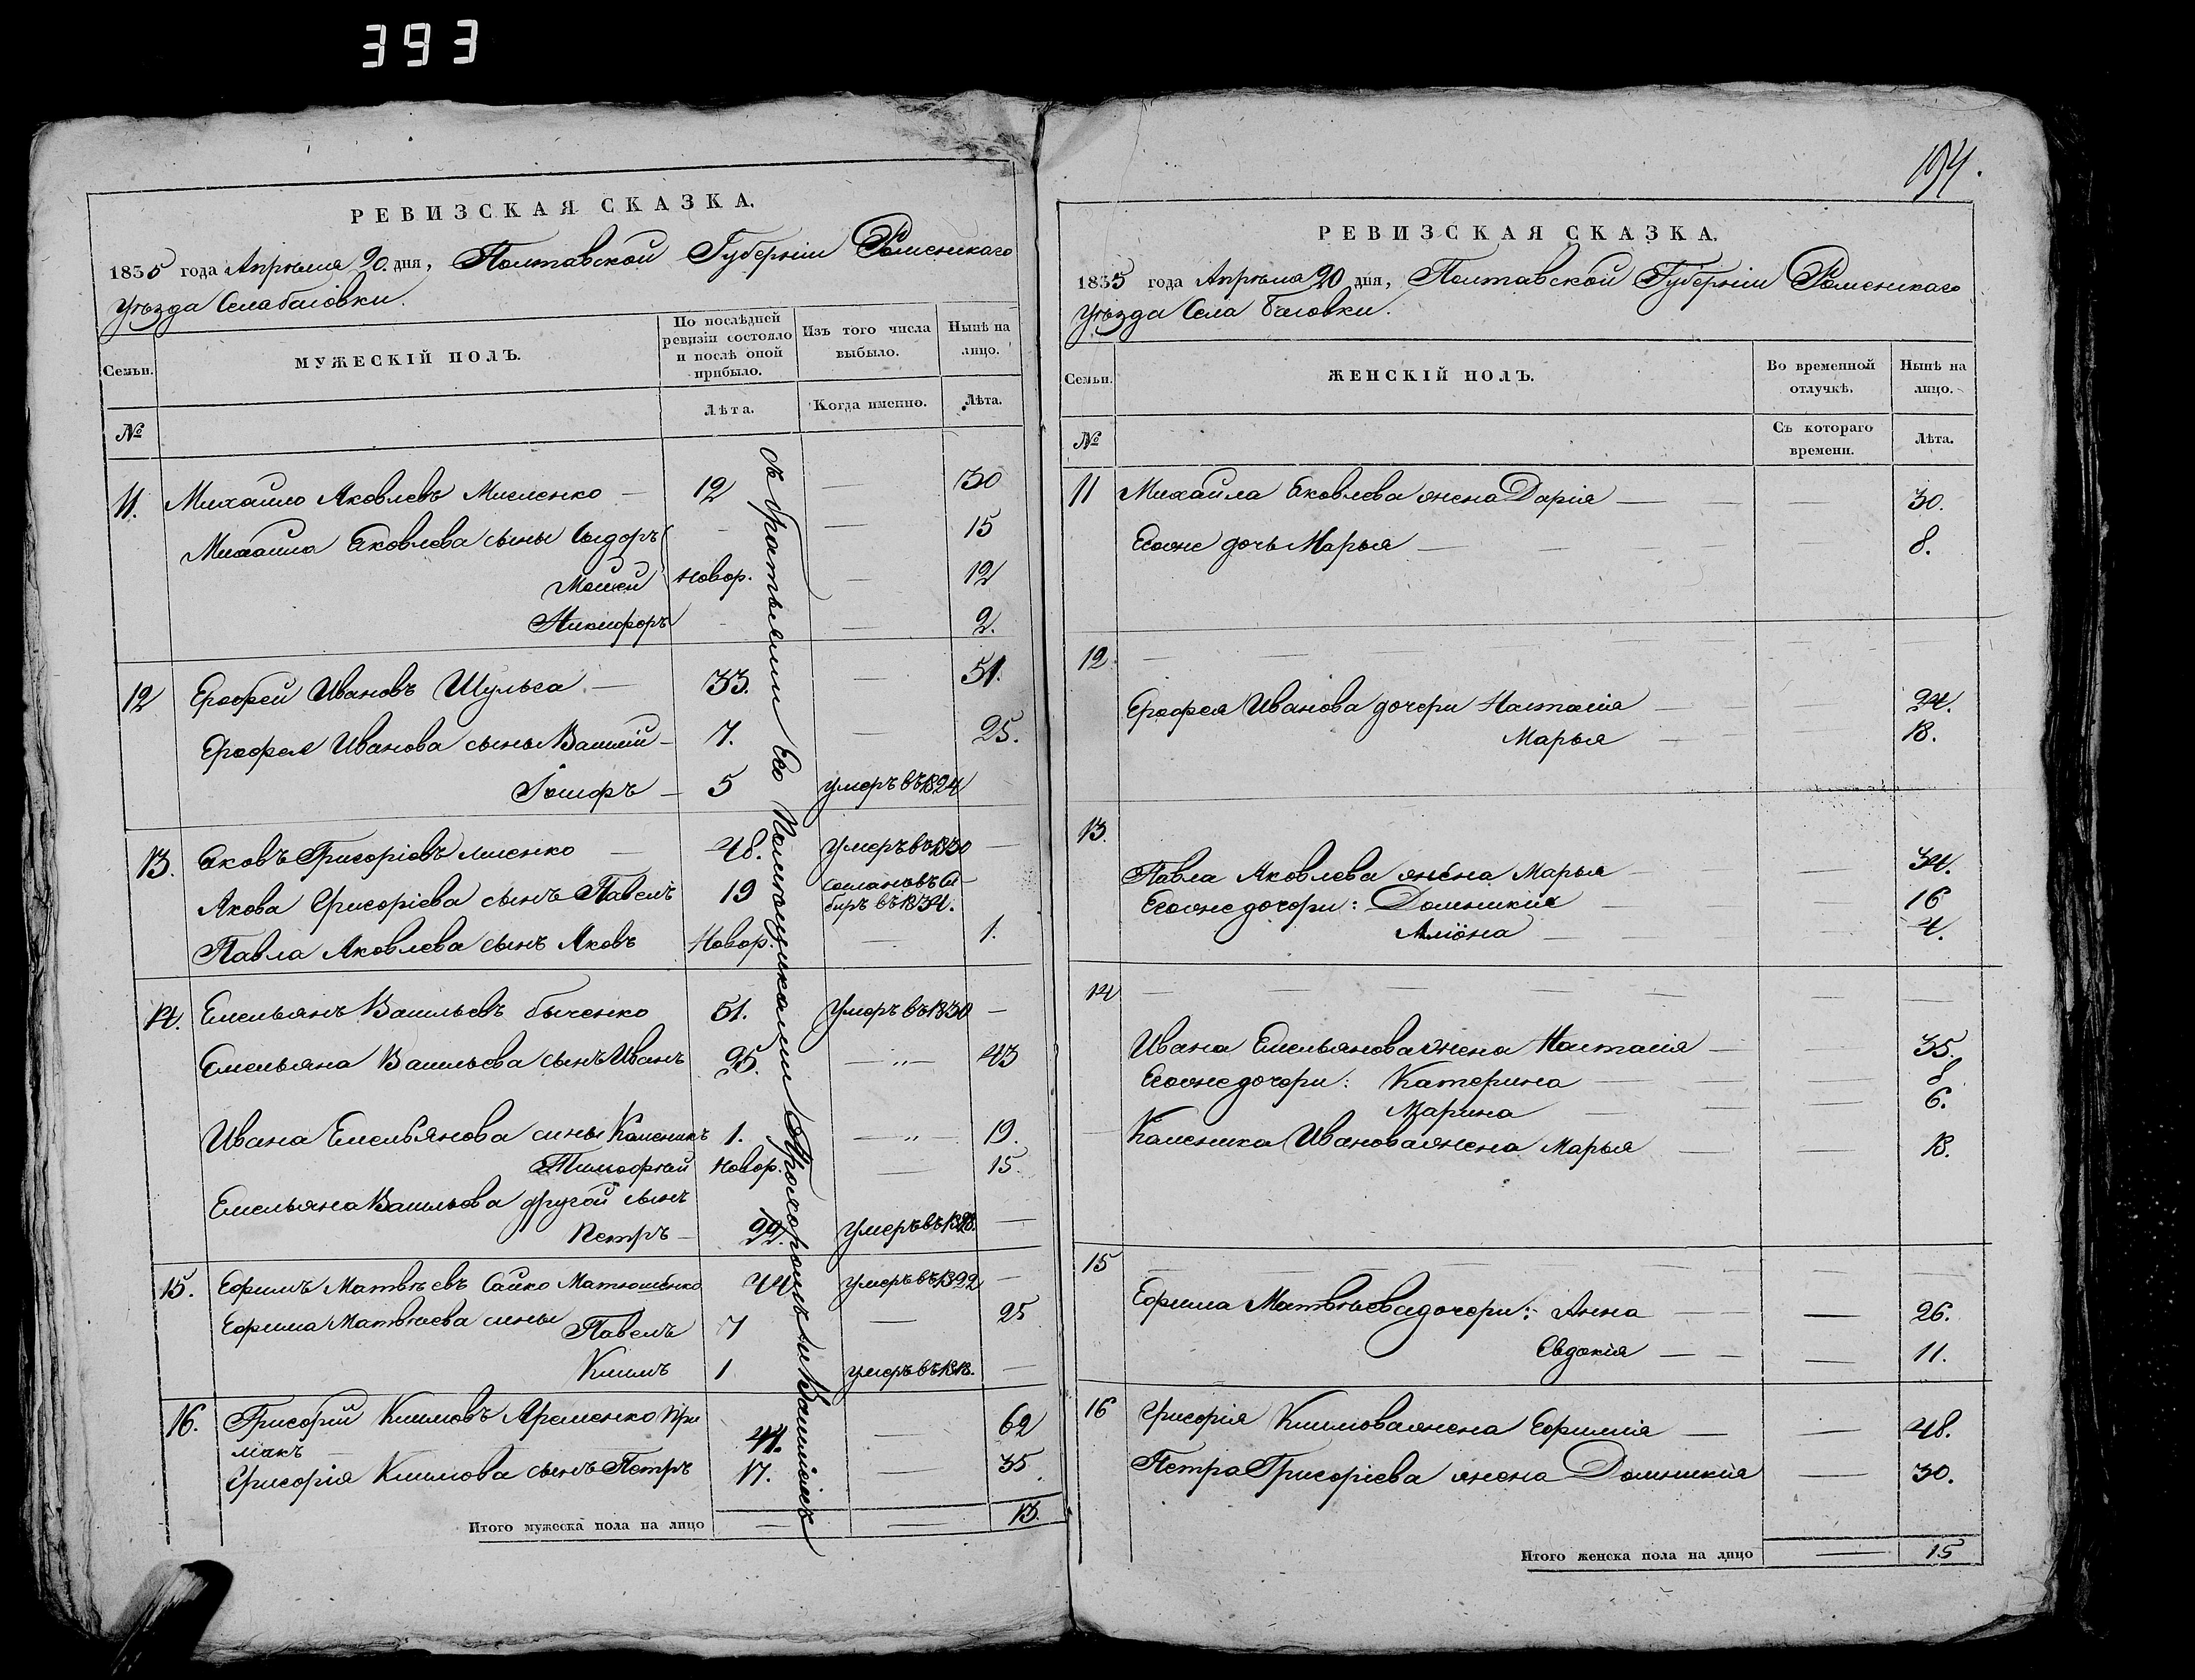 393
194.
РЕВИЗСКАЯ СКАЗКА.
1835 года Апрѣля 20. дня, Полтавской Губерніи Роменскаго
уѣзда Села басовки.
Семьи.
МУЖЕСКІЙ ПОЛЪ.
По послѣдней ревизіи состояло и послѣ оной прибыло.
Изъ того числа выбыло.
Нынѣ на лицо.
Лѣта.
Когда именно.
Лѣта.
№
11. Михайло Яковлевъ Мисленко — 12 — 30
Михайла Яковлева сыны Сыдоръ — — 15
Мойсей Новор. — 12
Никифоръ - — 2.
12 Ерофей Ивановъ Шульга — 33. — 51.
Ерофея Иванова сыны Василій — 7. — 25.
Іосифъ — 5 умеръ въ 1824
13. Яковъ Григоріевъ — 48. Умеръ въ 1830 —
Якова Григоріева сынъ Павелъ 19 сосланъ въ Си
биръ въ 1834.
Павла Яковлева сынъ Яковъ Новор. — 1.
14. Емельянъ Васильевъ быченко 51. Умеръ въ 1830 —
Емельяна Васильева сынъ Иванъ 25. — 43
Ивана Емельянова сыны Каленикъ 1. — 19.
Тимофѣй Новор. — 15.
Емельяна Васильева другой сынъ
Петръ — 22. Умеръ въ 1828. —
15. Ефимъ Матвѣевъ Сайко Матюшенко 44 умеръ въ 1822 —
Ефима Матвѣева сыны Павелъ 7 — 25
Климъ 1 умеръ въ 1818. —
16. Григорій Климовъ Яременко При
макъ 44. — 62
Григорія Климова сынъ Петръ 17. — 35.
Итого мужеска пола на лицо — — 13.
съ братьями Его Помѣщиками Прохоромъ и
РЕВИЗСКАЯ СКАЗКА.
1835 года Апрѣля 20 дня, Полтавской Губерніи Роменскаго
уѣзда Села Басовки.
Семьи.
ЖЕНСКІЙ ПОЛЪ.
Во временной отлучкѣ.
Нынѣ на лицо.
№
Съ котораго времени.
Лѣта.
11 Михайла Яковлева жена Дарія — — 30.
Егоже дочь Марья — — 8.
12. — — —
Ерофея Иванова дочери Настасія — — 24.
Марья — — 18.
13.
Павла Яковлева жена Марья — — 34.
Егоже дочери: Домникія — — 16
Алёна — — 4.
14 — — —
Ивана Емельянова жена Настасія — — 35.
Егоже дочери: Катерина — — 8
Марина — — 6.
Каленика Иванова жена Марья — — 18.
15 — — —
Ефима Матвѣева дочери: Анна — — 26.
Евдокія — — 11.
16 Григорія Климова жена Ефимія — — 48.
Петра Григоріева жена Домникія — 30.
Итого женска пола на лицо — 15